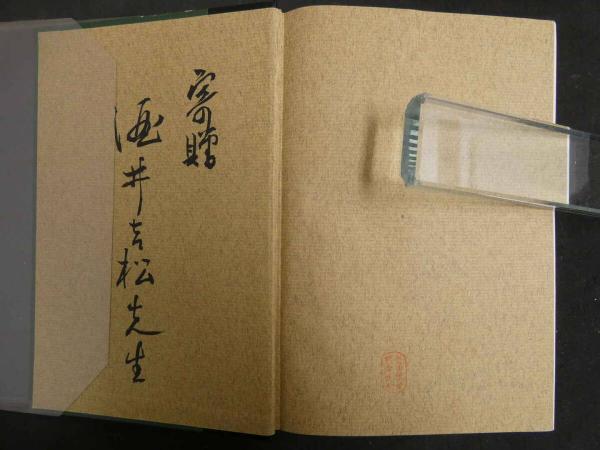 寄贈
酒井吉松先生